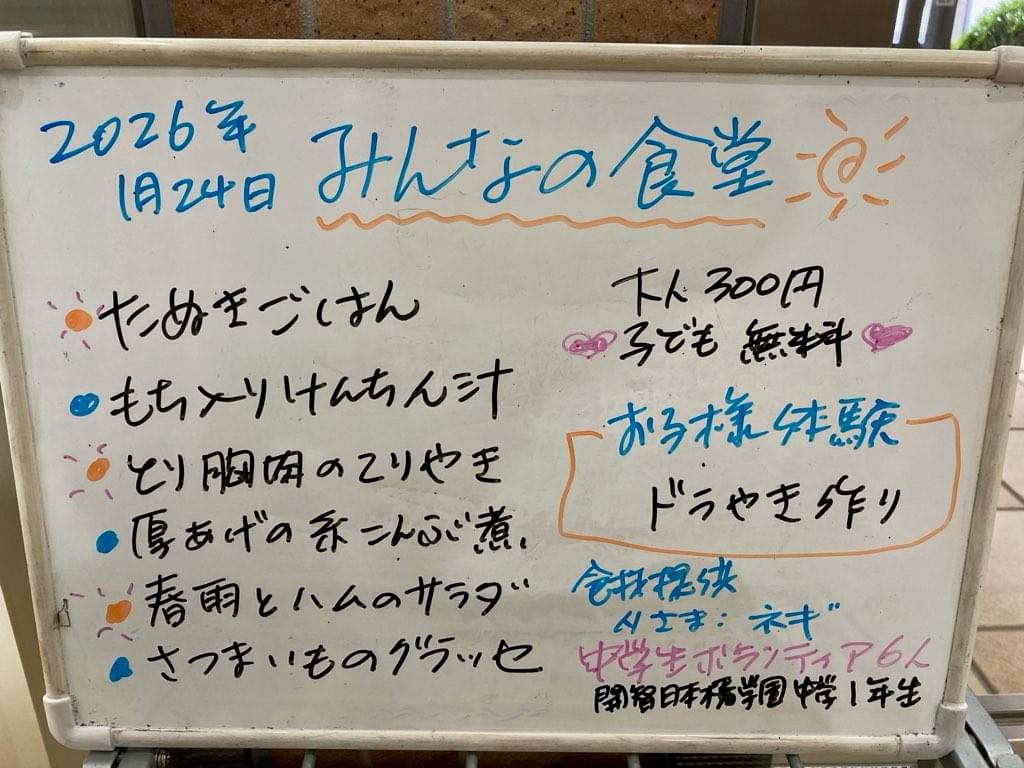 2026年
1月24日
みんなの食堂
たぬきごはん
もち入りけんちん汁
とり胸肉のてりやき
厚あげの糸こんぶ煮
春雨とハムのサラダ
さつまいものグラッセ
大人300円
子ども 無料
お子様体験
ドラやき作り
食材提供
さま:ネギ
中学生ボランティア6人
開智日本橋学園中学1年生